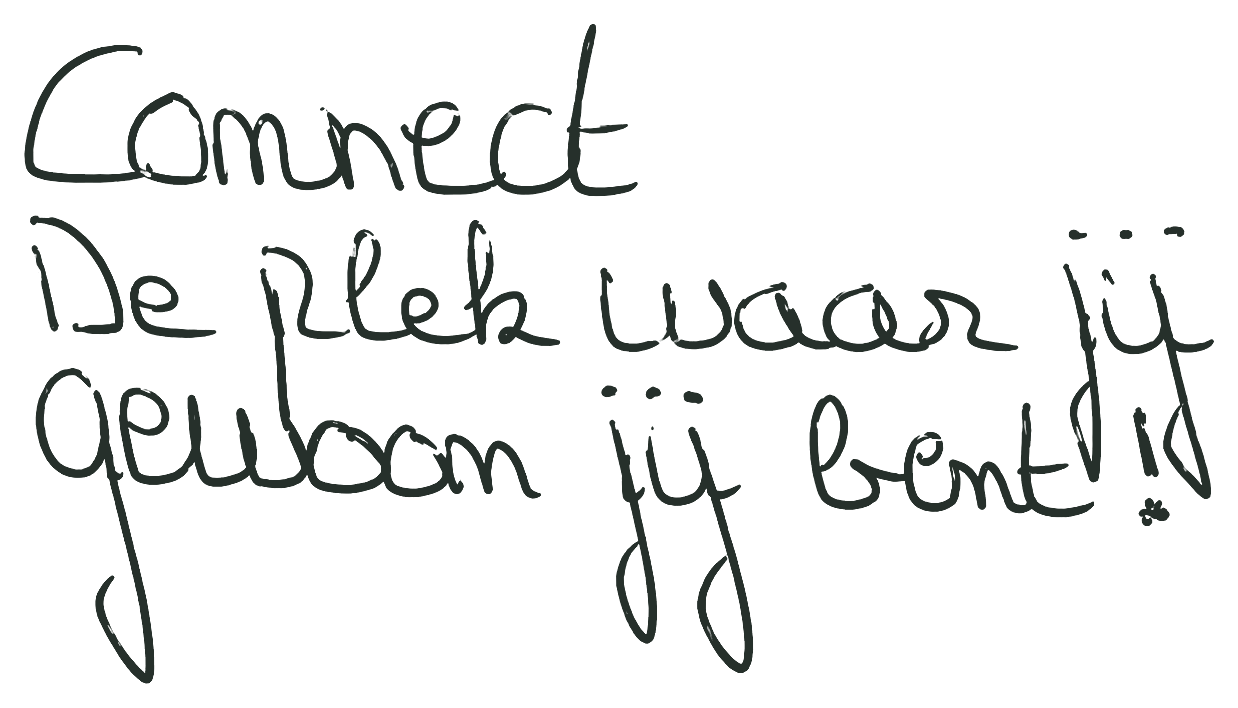 Connect
De plek waar jij
gewoon jij bent!